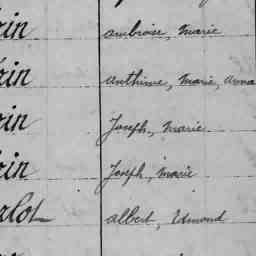 rin ambroise, Marie
rin anthime, Marie, anna
rin Joseph, Marie
rin Joseph, marie
rlot albert, Edmond